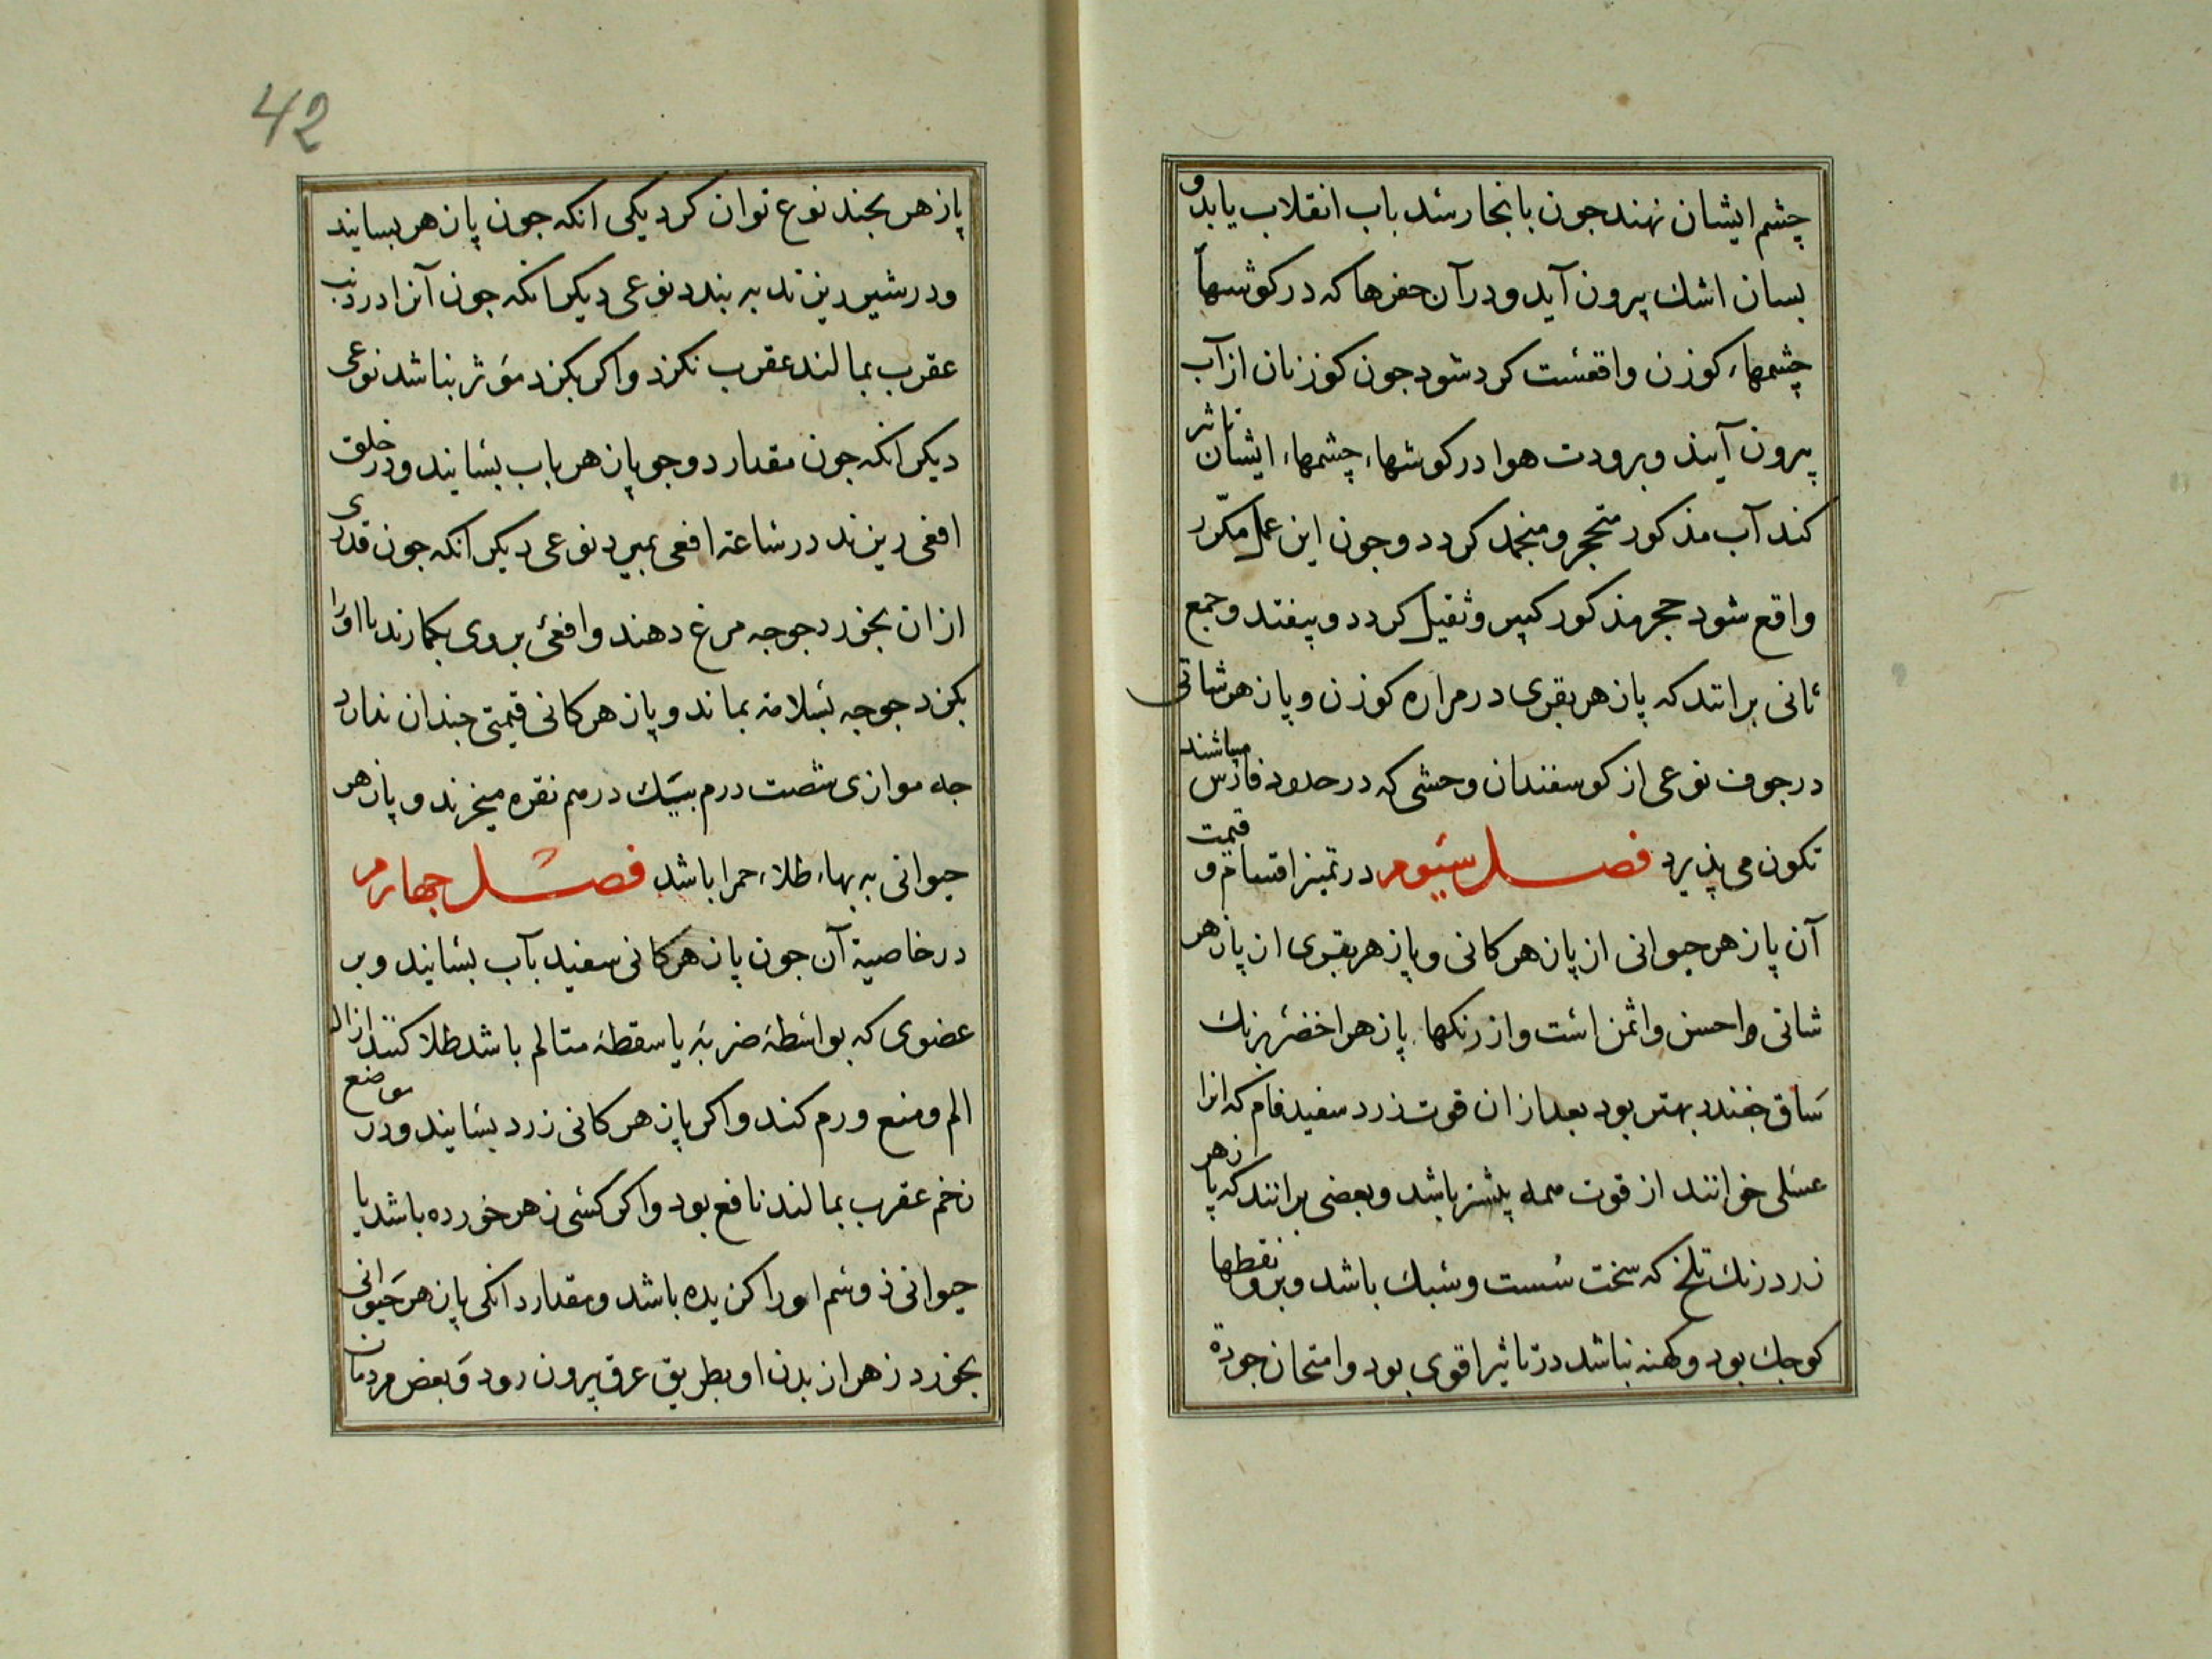 چشم ایشان نهند جون بانجا رسد باب انقلاب یابد و
بسان اشك بیرون آید و در آن حفرها که در کوشها
چشمهاء کوزن واقعست کرد شود جون کوزنان از آب
بیرون آیند و برودت هوا در کوشهاء چشمهاء ایشان تاثیر
کند آب مذکور متحجر و منجمد کردد و جون این عمل مکرّر
واقع شود حجر مذکور کبیر و ثقیل کردد و بیفتد و جمع
ثانی برانند که پازهر بقری در مراره کوزن و پازهر شاتی
در جوف نوعی از کوسفندان وحشی که در حدود فارس میباشند
تکون می پذیرد فصل سیوم در تمیز اقسام و قیمت
آن پازهر حیوانی از پازهر کانی و پازهر بقری از پازهر
شاتی و احسن و اثمن است و از رنکها پازهر اخضر برنك
ساق جغندر بهتر بود بعد از ان قوت زرد سفید فام که انرا
عسلی خوانند از قوت همه بیشتر باشد و بعضی برانند که پازهر
زرد رنك تلخ که سخت سست و سبك باشد و برو نقطها
کوجك بود و کهنه نباشد در تاثیر اقوی بود و امتحان جودة
42
پازهر بجند نوع توان کرد یکی انکه جون پازهر بسایند
و در شیر ریزند به بندد نوعی دیکر انکه جون آنرا در ذنب
عقرب بمالند عقرب نکزد و اکر بکزد مؤثر نباشد نوعی
دیکر انکه جون مقدار دو جو پازهر باب بسایند و در حلق
افعی ریزند در ساعة افعی بمیرد نوعی دیکر انکه جون قدری
از ان بخورد جوجه مرغ دهند و افعی بر وی بکمارند تا اورا
بکزد جوجه بسلامة بماند و پازهر کانی قیمتی جندان ندارد
جه موازی شصت درم بیك درم نقره میخرند و پازهر
حیوانی به بهاء طلاء حمرا باشد فصل جهارم
در خاصیة آن جون پازهر کانی سفید بآب بسایند و بر
عضوی که بواسطهٔ ضربهٔ یا سقطهٔ متالم باشد طلا کنند ازاله
الم و منع ورم کند و اکر پازهر کانی زرد بسایند و در موضع
زخم عقرب بمالند نافع بود و اکر کسی زهر خورده باشد یا
حیوانی ذو سم اورا کزیده باشد و مقدار دانکی پازهر حیوانی
بخورد زهر از بدن او بطریق عرق بیرون رود و بعض مردمان